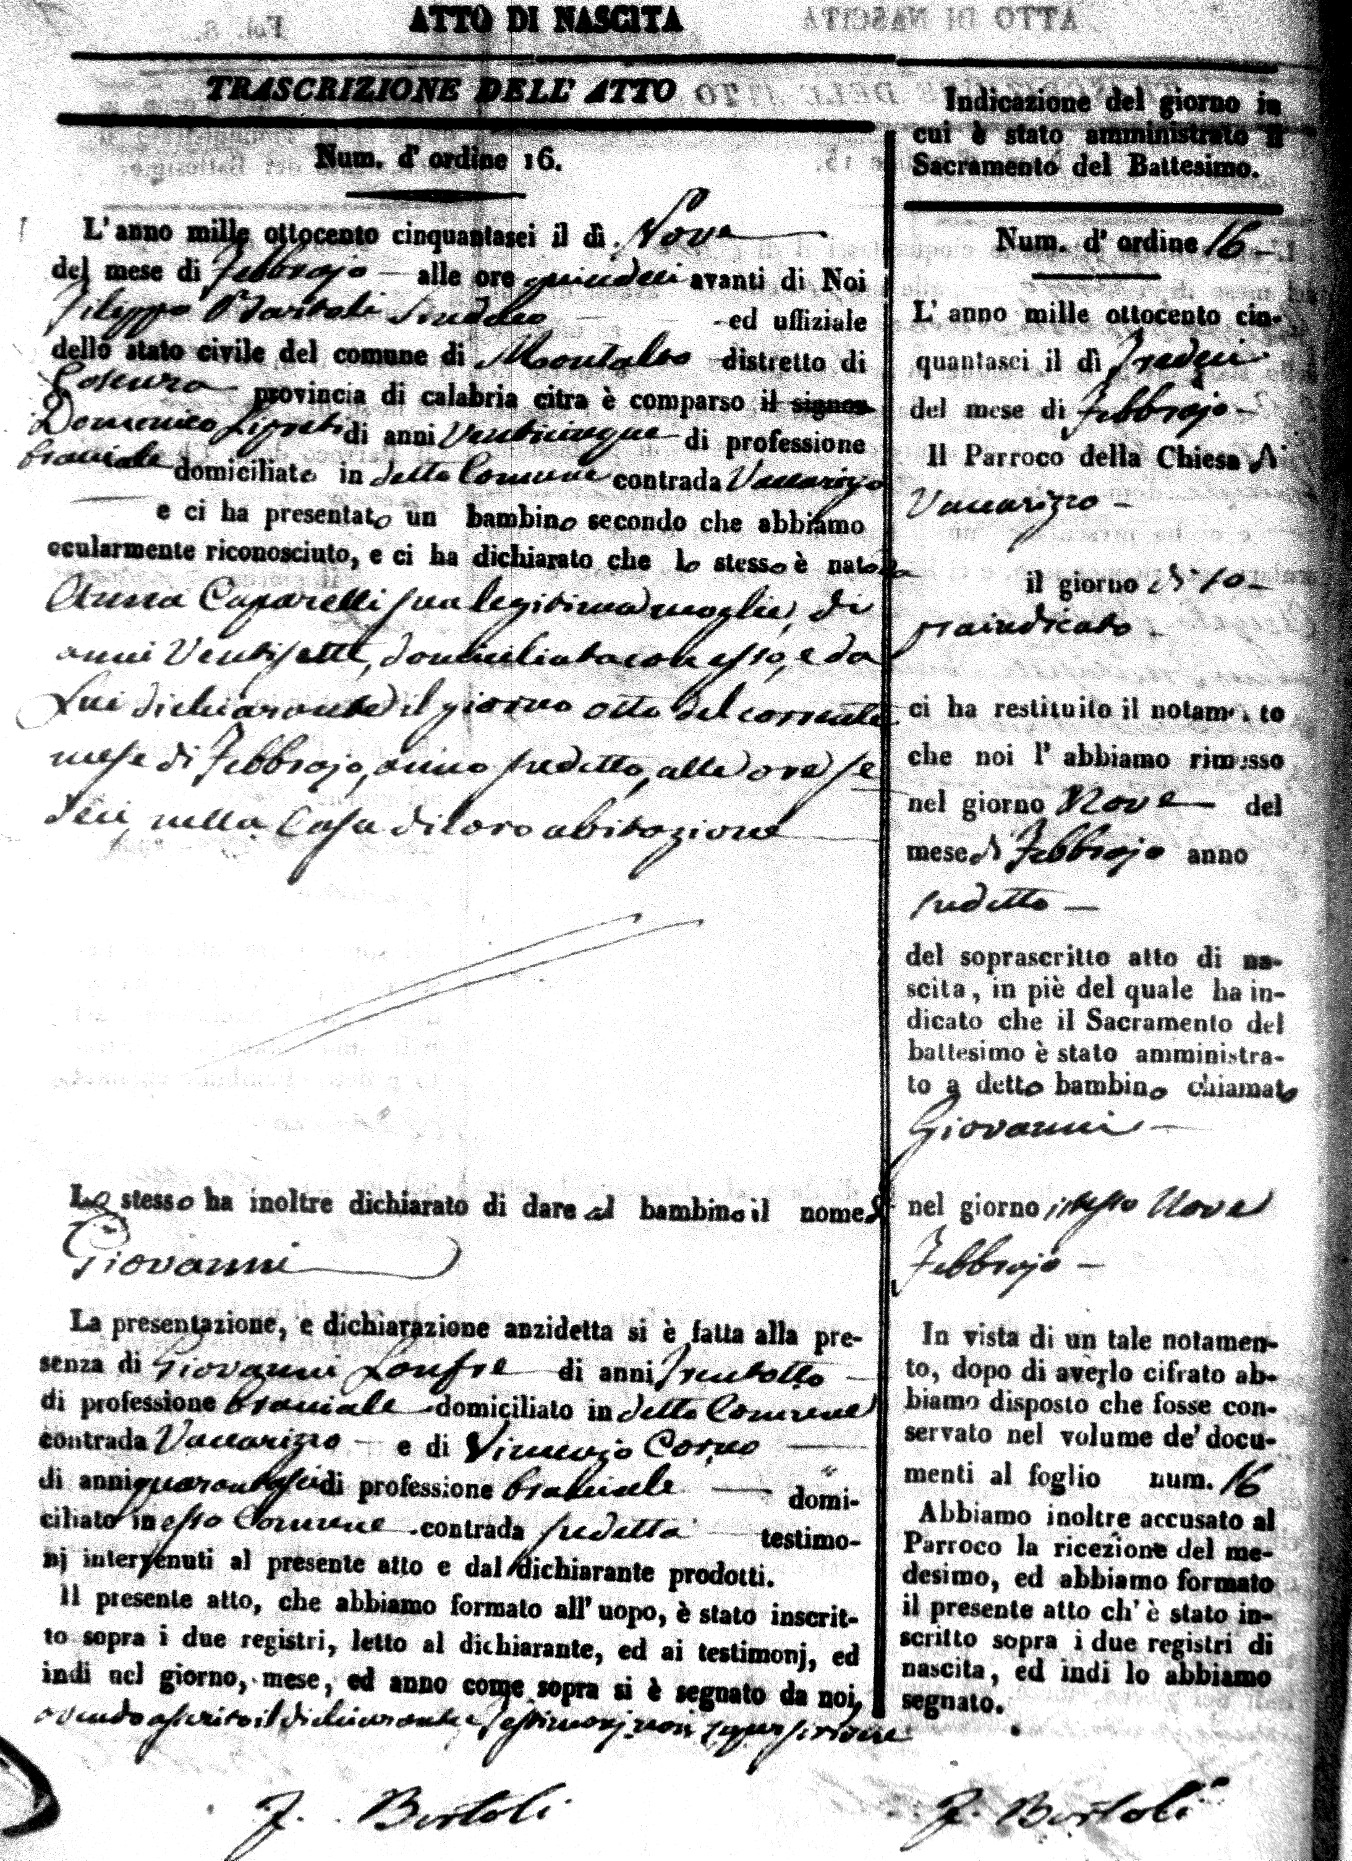 ATTO DI NASCITA
TRASCRIZIONE DELL' ATTO
Num. d' ordine 16.
L' anno mille ottocento cinquantasei il dì Nove
del mese di Febbrajo alle ore quindeci avanti di Noi
Filippo Bartoli Sindaco ed uffiziale
dello stato civile del comune di Montalto distretto di
Cosenza provincia di calabria citra è comparso il signor
Domenico di anni Venticinque di professione
braciale domiciliato in detto Comune contrada Vaccarizzo
e ci ha presentato un bambino secondo che abbiamo
ocularmente riconosciuto, e ci ha dichiarato che lo stesso è nato da
Anna Caparelli sua legitima moglie, di
anni Ventisette, domiciliata con esso, e da
Lui dichiarante il giorno otto del corrente
mese di Febbrajo, anno sudetto, alle ore se
deci, nella Casa di loro abitazione
Lo stesso ha inoltre dichiarato di dare al bambino il nome di
Giovanni
La presentazione, e dichiarazione anzidetta si è fatta alla pre-
senza di Giovanni di anni Trentotto
di professione braciale domiciliato in detto Comune
contrada Vaccarizzo e di Vincenzo Corno
di anni quarantasei di professione braciale domi-
ciliato in esso Comune contrada sudetta testimo-
nj intervenuti al presente atto e dal dichiarante prodotti.
Il presente atto, che abbiamo formato all' uopo, è stato inscrit-
to sopra i due registri, letto al dichiarante, ed ai testimonj, ed
indi nel giorno, mese, ed anno come sopra si è segnato da noi,
avendo asserito il dichiarante, e testimonj non saper scrivere
F. Bartoli
Indicazione del giorno in
cui è stato amministrato il
Sacramento del Battesimo.
Num. d' ordine 16
L' anno mille ottocento cin-
quantasei il dì Tredici
del mese di Febbrajo
Il Parroco della Chiesa di
Vaccarizzo
il giorno
praindicato
ci ha restituito il notamento
che noi l' abbiamo rimesso
nel giorno Nove del
mese di Febbrajo anno
sudetto
del soprascritto atto di na-
scita, in piè del quale ha in-
dicato che il Sacramento del
battesimo è stato amministra-
to a detto bambino chiamato
Giovanni
nel giorno istesso Nove
Febbrajo
In vista di un tale notamen-
to, dopo di averlo cifrato ab-
biamo disposto che fosse con-
servato nel volume de' docu-
menti al foglio num. 16
Abbiamo inoltre accusato al
Parroco la ricezione del me-
desimo, ed abbiamo formato
il presente atto ch' è stato in-
scritto sopra i due registri di
nascita, ed indi lo abbiamo
segnato.
F. Bartoli